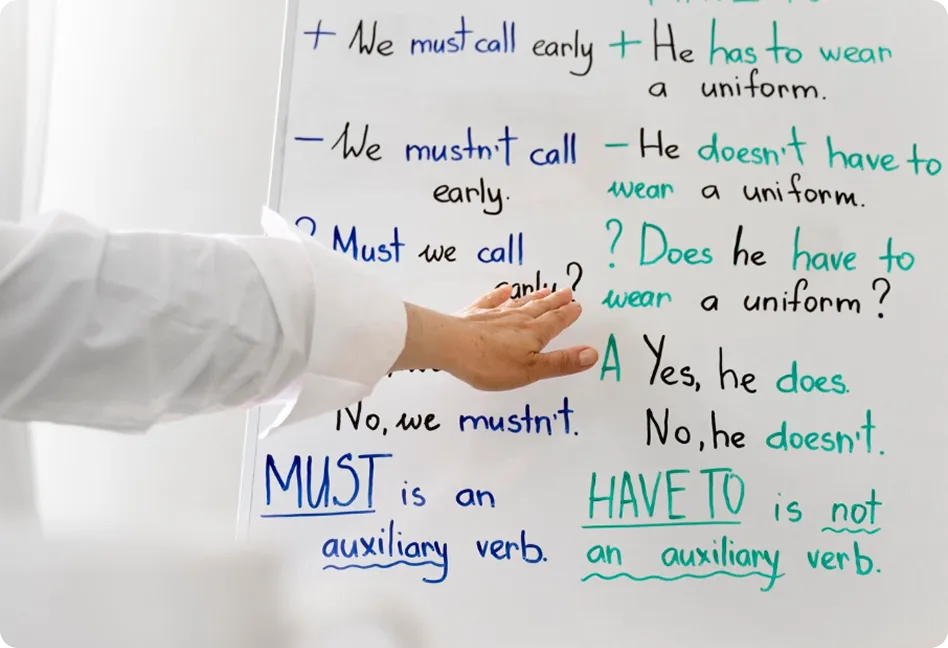 + We must call early
− We mustn't call
early.
? Must we call
early?
No, we mustn't.
MUST is an
auxiliary verb.
+ He has to wear
a uniform.
− He doesn't have to
wear a uniform.
? Does he have to
wear a uniform?
A Yes, he does.
No, he doesn't.
HAVE TO is not
an auxiliary verb.